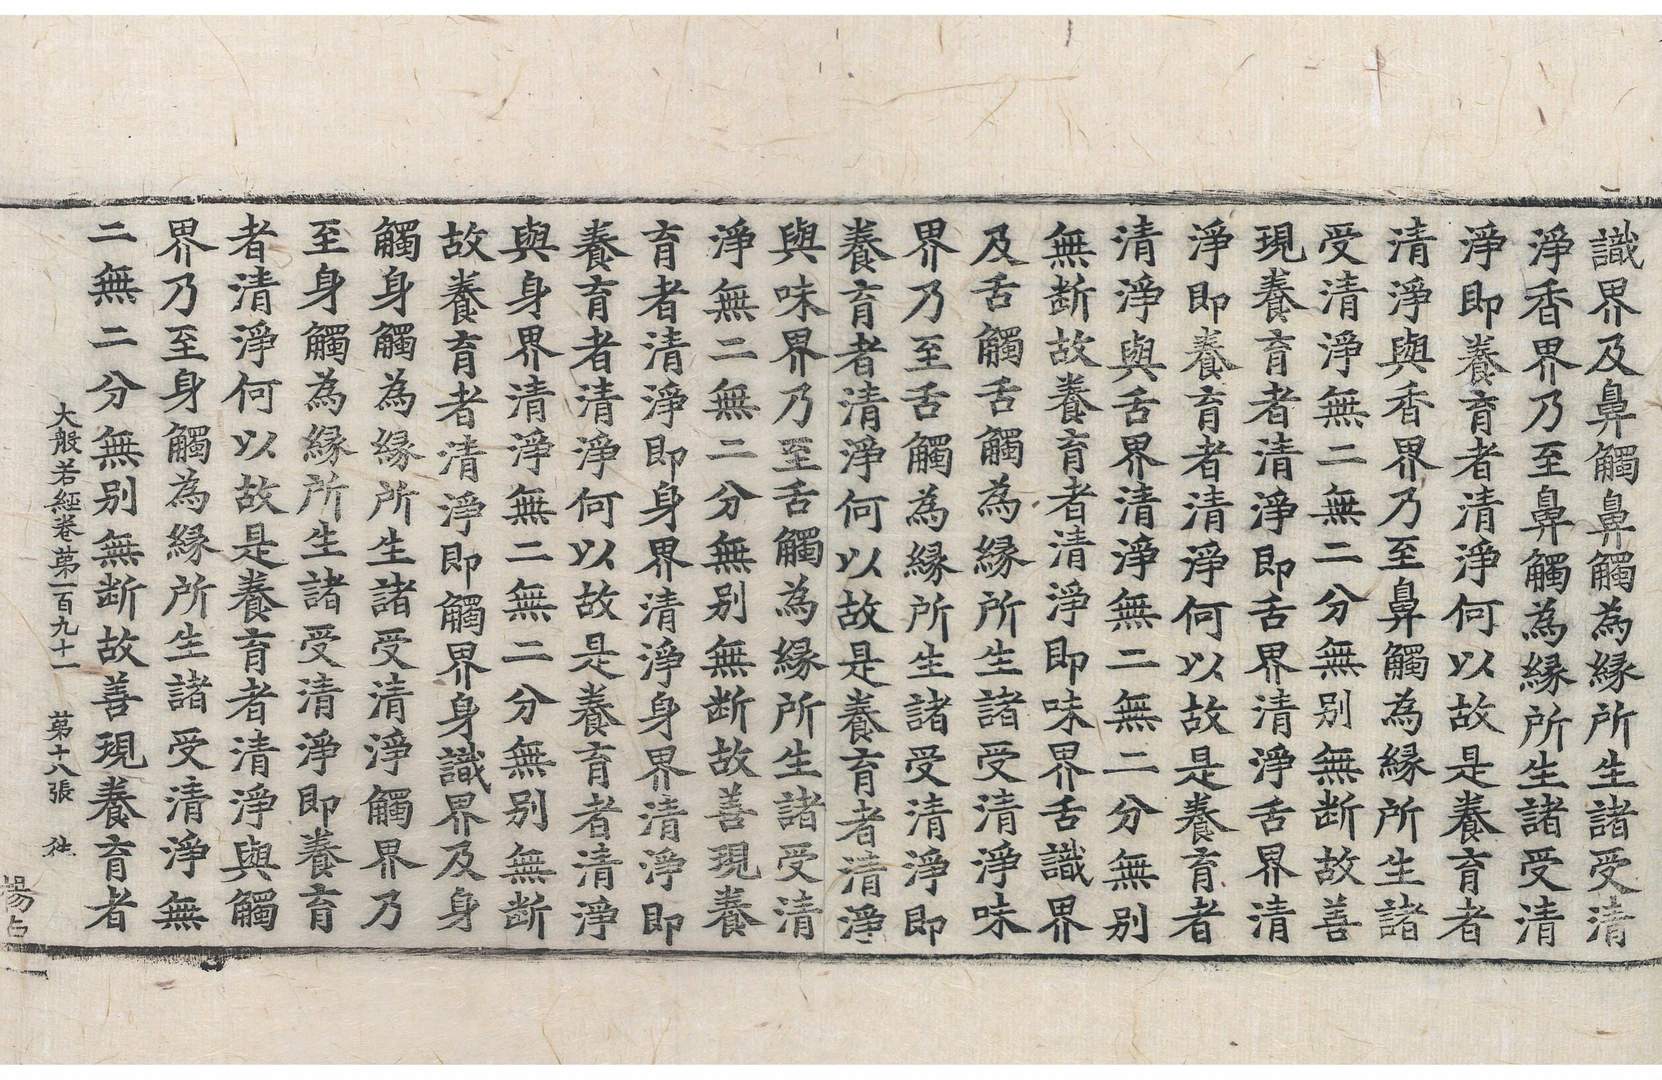 識界及鼻觸鼻觸為縁所生諸受清
淨香界乃至鼻觸為縁所生諸受清
淨即養育者清淨何以故是養育者
清淨與香界乃至鼻觸為縁所生諸
受清淨無二無二分無别無断故善
現養育者清淨即舌界清淨舌界清
淨即養育者清淨何以故是養育者
清淨與舌界清淨無二無二分無别
無断故養育者清淨即味界舌識界
及舌觸舌觸為縁所生諸受清淨味
界乃至舌觸為縁所生諸受清淨即
養育者清淨何以故是養育者清淨
與味界乃至舌觸為縁所生諸受清
淨無二無二分無别無断故善現養
育者清淨即身界清淨身界清淨即
養育者清淨何以故是養育者清淨
與身界清淨無二無二分無别無断
故養育者清淨即觸界身識界及身
觸身觸為縁所生諸受清淨觸界乃
至身觸為縁所生諸受清淨即養育
者清淨何以故是養育者清淨與觸
界乃至身觸為縁所生諸受清淨無
二無二分無别無断故善現養育者
大般若經卷苐一百九十一 苐十八張